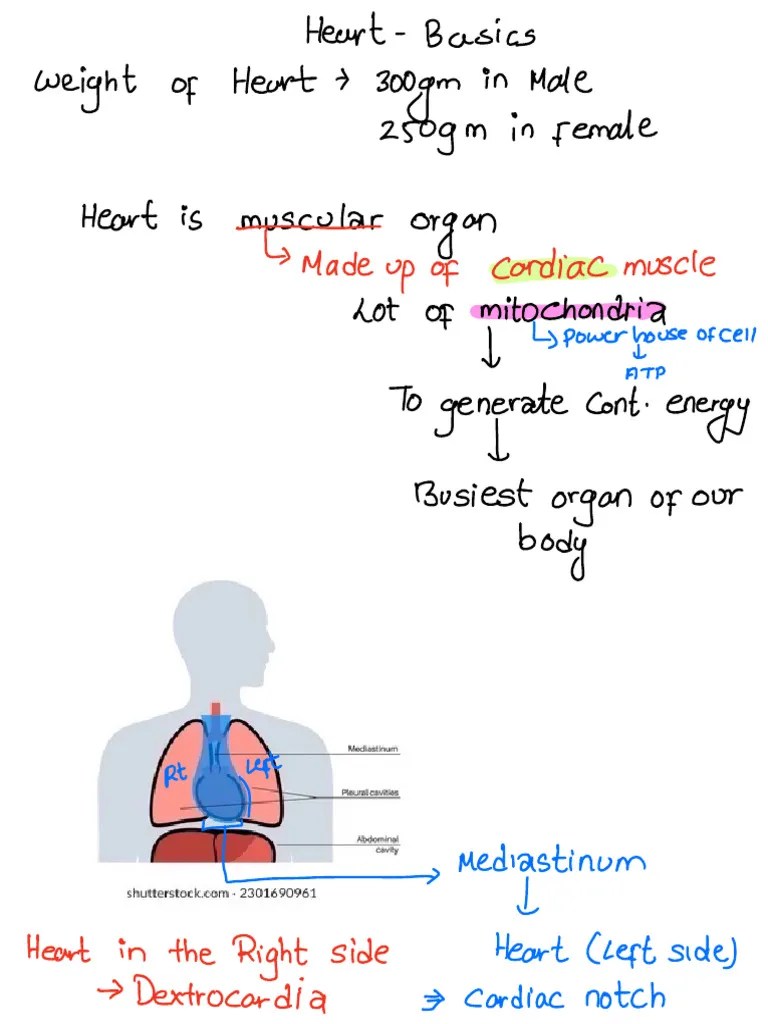 Heart - Basics
Weight of Heart → 300gm in Male
250gm in female
Heart is muscular organ
↳ Made up of cardiac muscle
Lot of mitochondria
↳ Power house of cell
↓
ATP
↓
To generate Cont. energy
↓
Busiest organ of our
body
Mediastinum
Rt Left
Pleural cavities
Abdominal
cavity
shutterstock.com · 2301690961
→ Mediastinum
↓
Heart in the Right side
Heart (Left side)
→ Dextrocardia
⇒ Cardiac notch